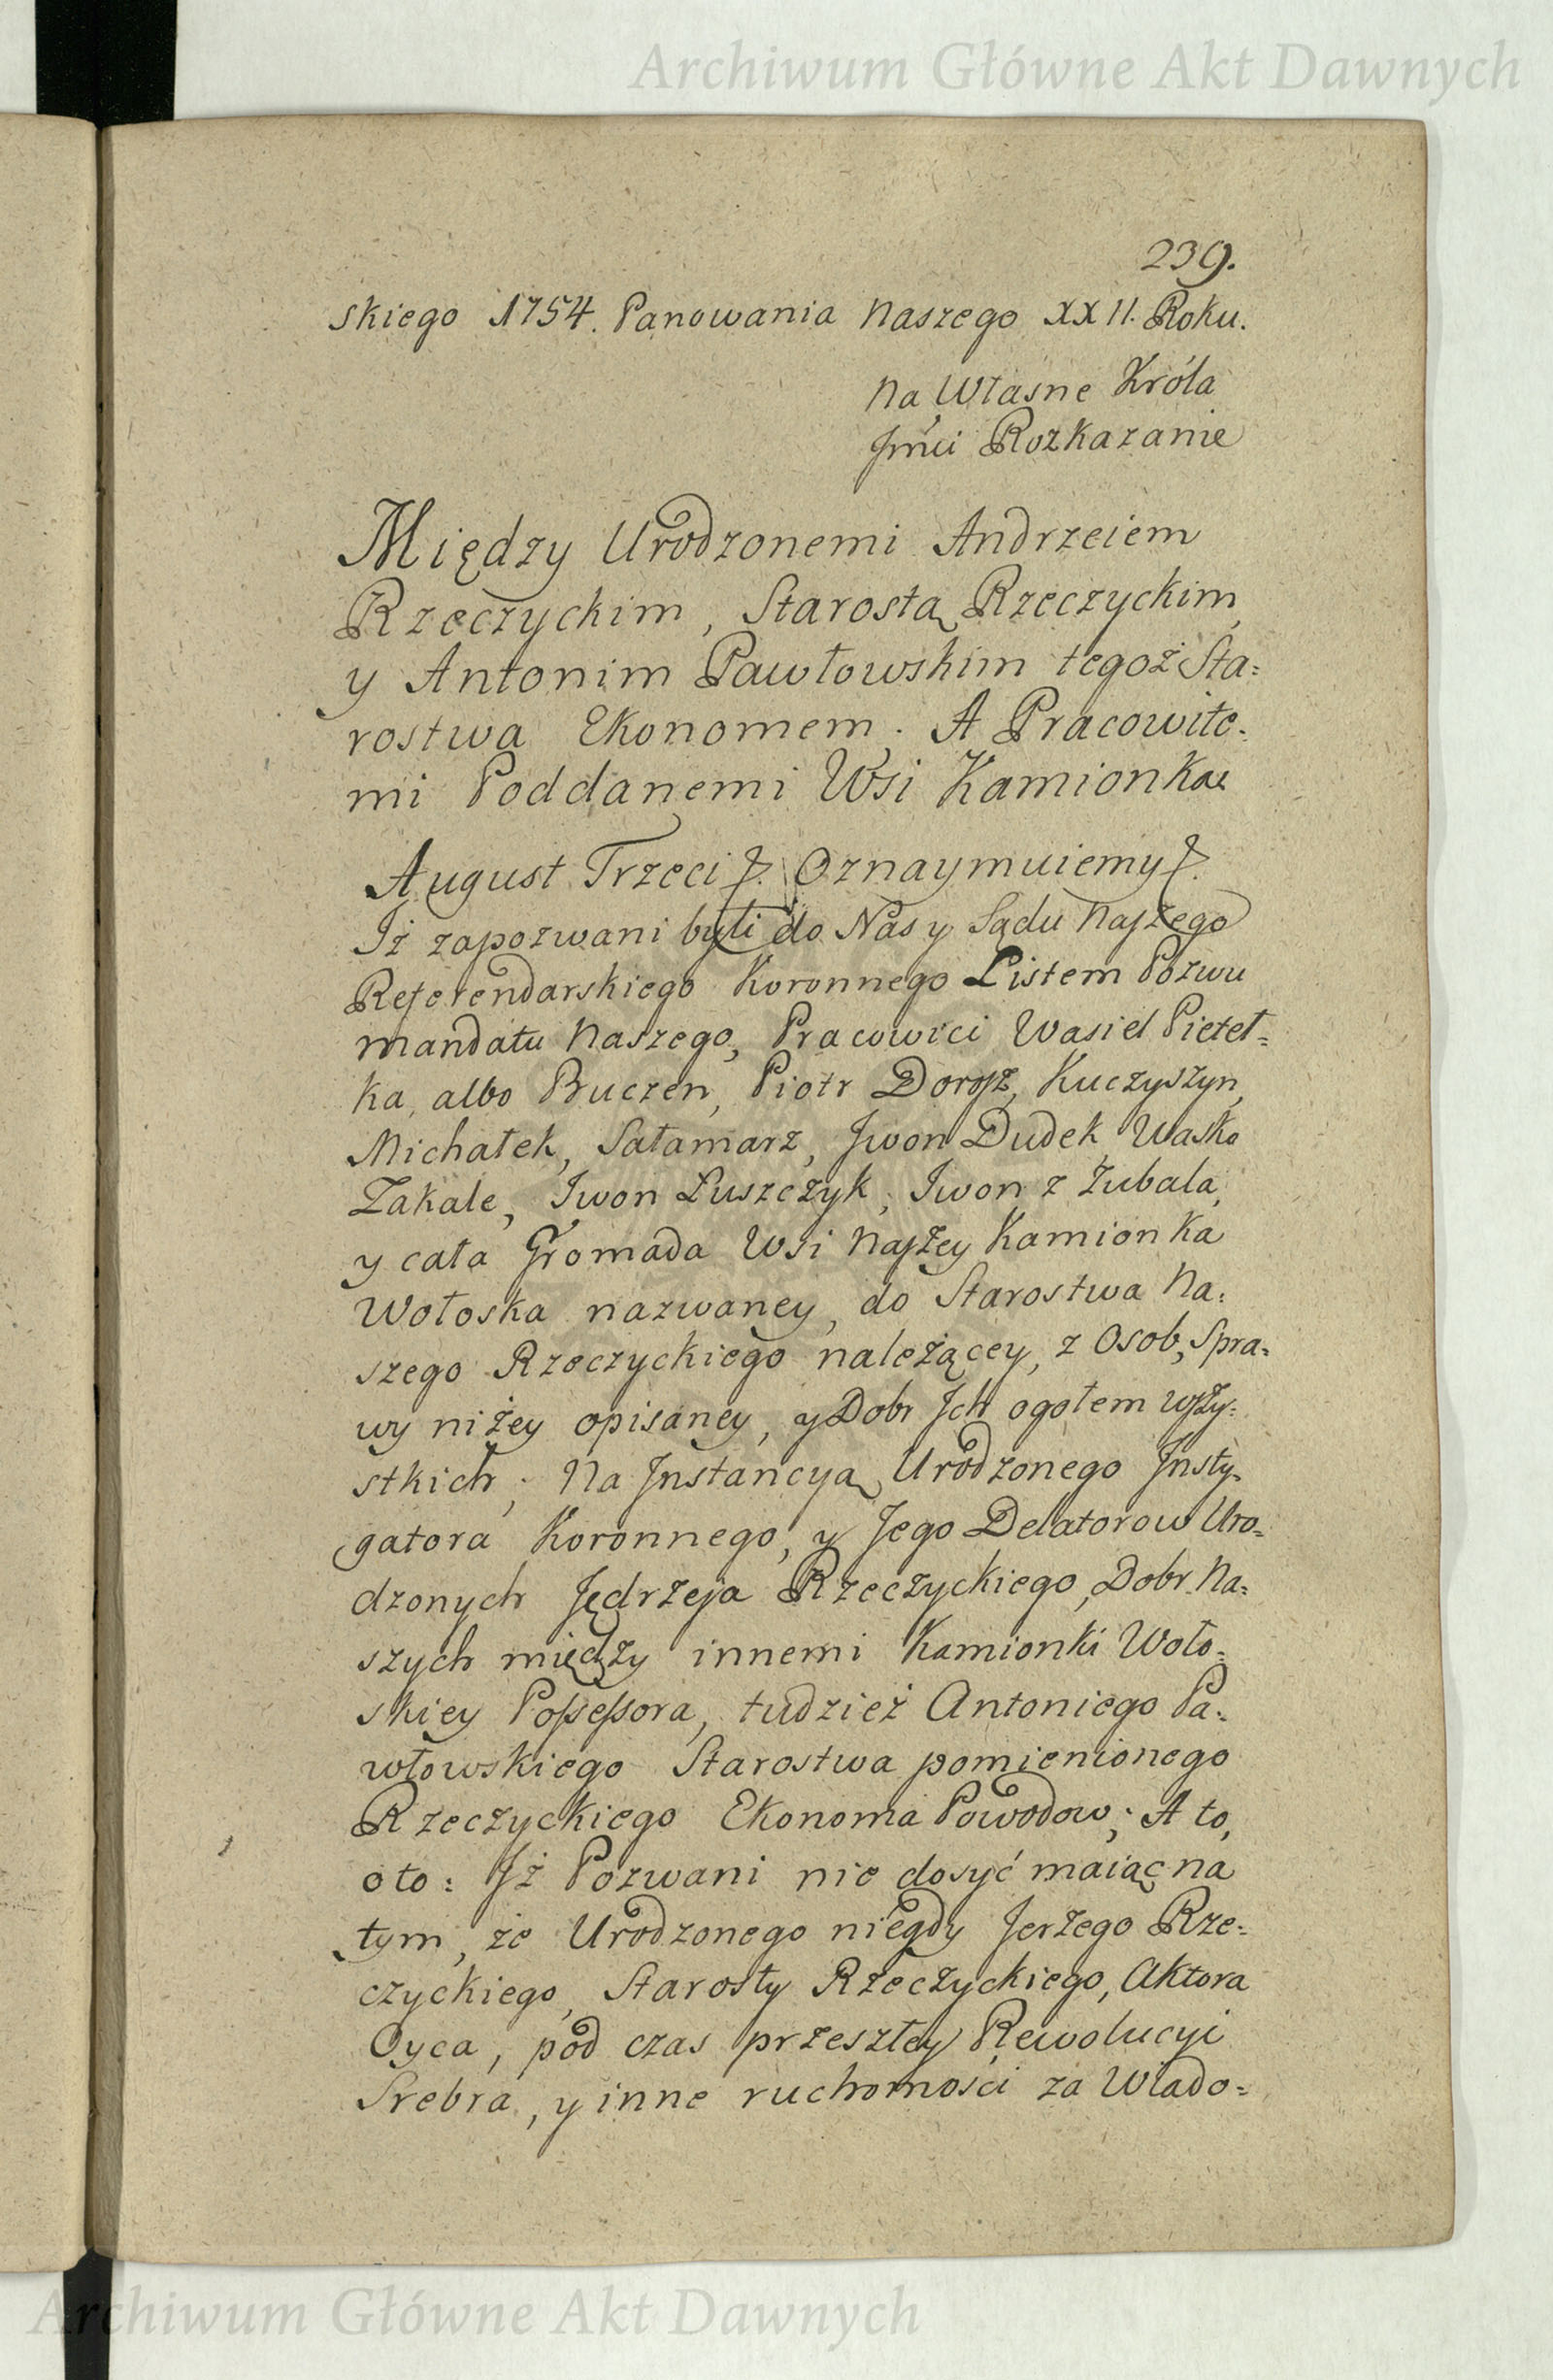 Archiwum Główne Akt Dawnych
239.
skiego 1754. Panowania Naszego XXII. Roku.
Na Własne Króla
Jmći Rozkazanie
Między Urodzonemi Andrzeiem
Rzeczyckim, Starostą Rzeczyckim,
y Antonim Pawłowskim tegoż Sta=
rostwa Ekonomem. A Pracowite=
mi Poddanemi Wsi Kamionka
August Trzeci Oznaymuiemy
Iż zapozwani byli do Nas y Sądu Naszego
Referendarskiego Koronnego Listem Pozwu
mandatu Naszego, Pracowici Wasiel Pietet=
ka, albo Buczen, Piotr Dorosz, Kuczyszyn,
Michałek, Sałamarz, Jwon Dudek Wasko
Zakale, Iwon Łuszczyk, Iwon z Zubala,
y cała Gromada Wsi Naszey Kamionka
Wołoska nazwaney, do Starostwa Na=
szego Rzeczyckiego należącey, z Osob, Spra=
wy niżey opisaney, y Dobr Jch ogołem wszy=
stkich, Na Jnstancyą Urodzonego Jnsty=
gatora Koronnego, y Jego Delatorow Uro=
dzonych Jędrzeja Rzeczyckiego, Dobr Na=
szych między innemi Kamionki Woło=
skiey Possessora, tudzież Antoniego Pa=
włowskiego Starostwa pomienionego
Rzeczyckiego Ekonoma Powodow; A to,
oto: Jż Pozwani nie dosyć maiąc na
tym, że Urodzonego niegdy Jerzego Rze=
czyckiego, Starosty Rzeczyckiego, Aktora
Oyca, pod czas przeszłey Rewolucyi
Srebra, y inne ruchomości za Wiado=
Archiwum Główne Akt Dawnych